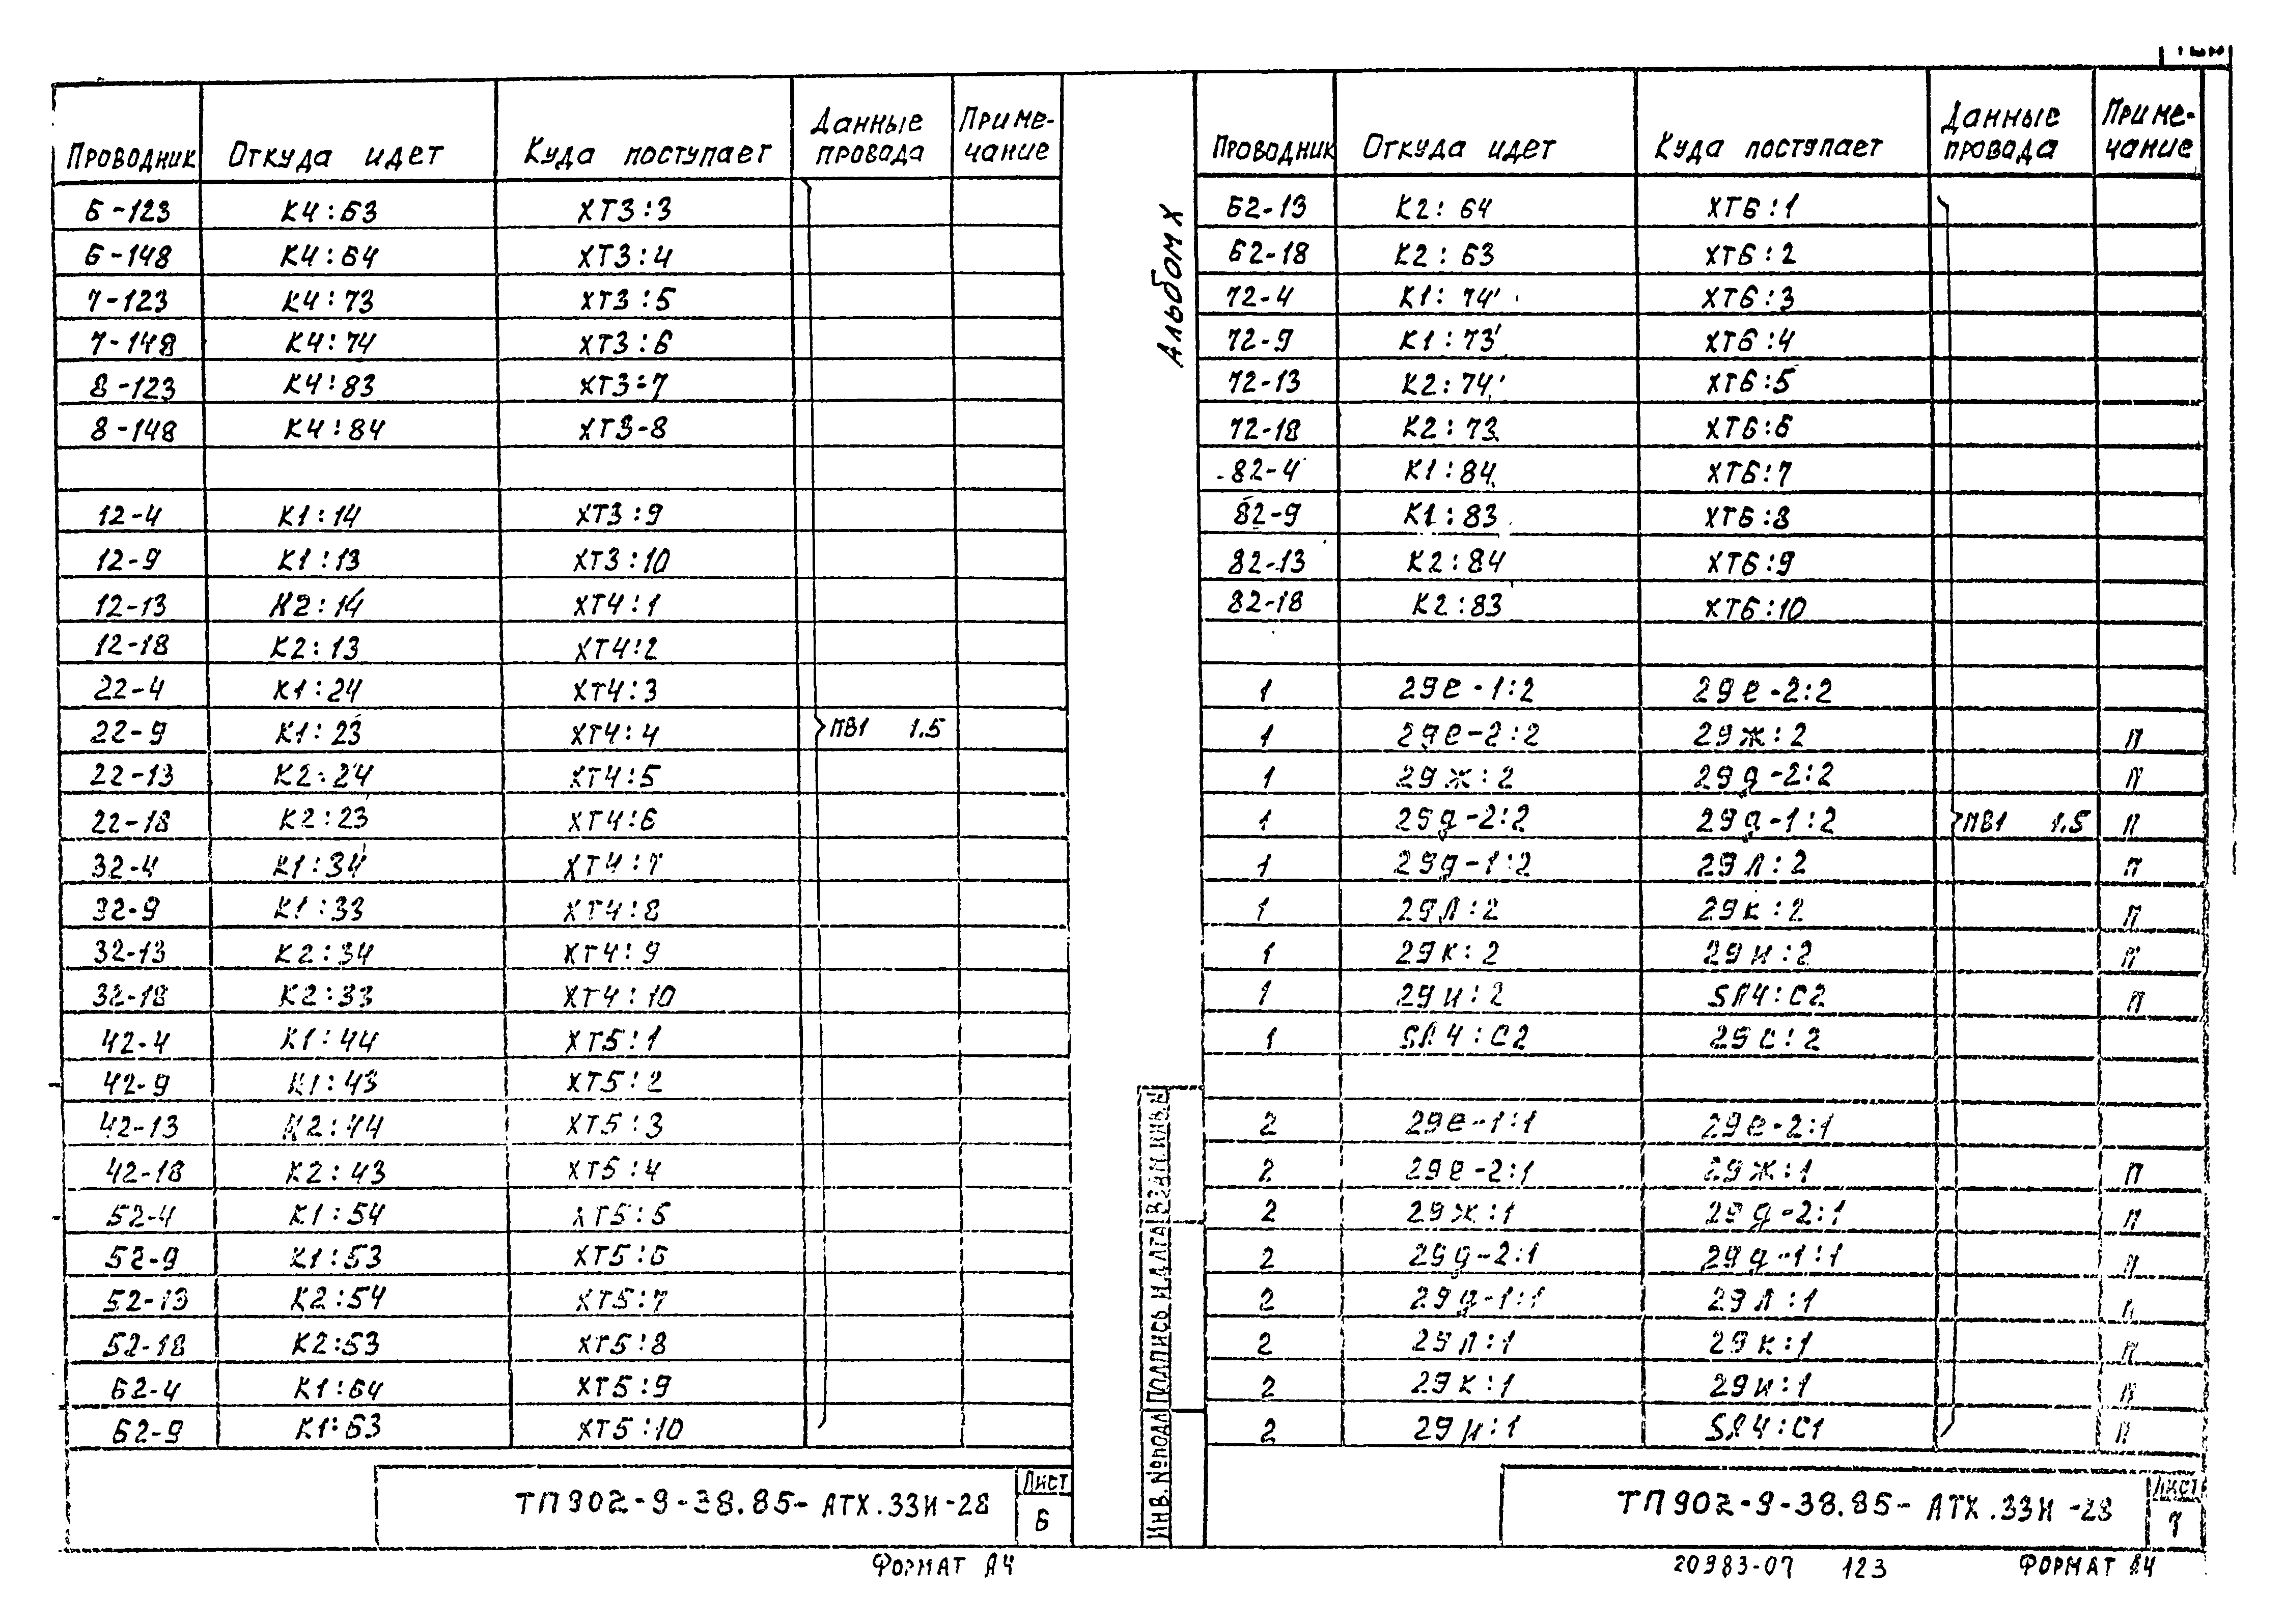 Проводник Откуда идет Куда поступает Данные провода Приме-чание
6-123 К4:63 ХТ3:3
6-148 К4:64 ХТ3:4
7-123 К4:73 ХТ3:5
7-148 К4:74 ХТ3:6
8-123 К4:83 ХТ3:7
8-148 К4:84 ХТ3-8
12-4 К1:14 ХТ3:9
12-9 К1:13 ХТ3:10
12-13 К2:14 ХТ4:1
12-18 К2:13 ХТ4:2
22-4 К1:24 ХТ4:3
22-9 К1:23 ХТ4:4 ПВ1 1.5
22-13 К2:24 ХТ4:5
22-18 К2:23 ХТ4:6
32-4 К1:34 ХТ4:7
32-9 К1:33 ХТ4:8
32-13 К2:34 ХТ4:9
32-18 К2:33 ХТ4:10
42-4 К1:44 ХТ5:1
42-9 К1:43 ХТ5:2
42-13 К2:44 ХТ5:3
42-18 К2:43 ХТ5:4
52-4 К1:54 ХТ5:5
52-9 К1:53 ХТ5:6
52-13 К2:54 ХТ5:7
52-18 К2:53 ХТ5:8
62-4 К1:64 ХТ5:9
62-9 К1:63 ХТ5:10
ТП902-9-38.85-АТХ.33И-28
Лист
6
Формат А4
Альбом X
Проводник Откуда идет Куда поступает Данные провода Приме-чание
62-13 К2:64 ХТ6:1
62-18 К2:63 ХТ6:2
72-4 К1:74 ХТ6:3
72-9 К1:73 ХТ6:4
72-13 К2:74 ХТ6:5
72-18 К2:73 ХТ6:6
82-4 К1:84 ХТ6:7
82-9 К1:83 ХТ6:8
82-13 К2:84 ХТ6:9
82-18 К2:83 ХТ6:10
1 29е-1:2 29е-2:2
1 29е-2:2 29ж:2 П
1 29ж:2 29д-2:2 П
1 29д-2:2 29д-1:2 ПВ1 1.5 П
1 29д-1:2 29л:2 П
1 29л:2 29к:2 П
1 29к:2 29и:2 П
1 29и:2 SA4:C2 П
1 SA4:C2 29с:2
2 29е-1:1 29е-2:1
2 29е-2:1 29ж:1 П
2 29ж:1 29д-2:1 П
2 29д-2:1 29д-1:1 П
2 29д-1:1 29л:1 П
2 29л:1 29к:1 П
2 29к:1 29и:1 П
2 29и:1 SA4:C1 П
Инв.№подл Подпись и дата Взам.инв.№
ТП902-9-38.85-АТХ.33И-28
Лист
7
20983-07 123 Формат А4